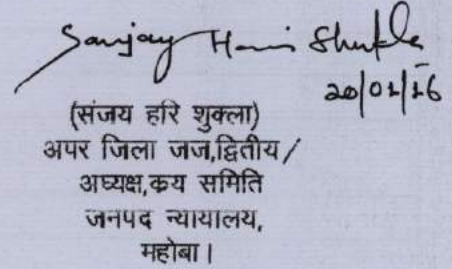 Sanjay Hari Shukla
20/01/16
(संजय हरि शुक्ला)
अपर जिला जज,द्वितीय /
अघ्यक्ष,कय समिति
जनपद न्यायालय,
महोबा।